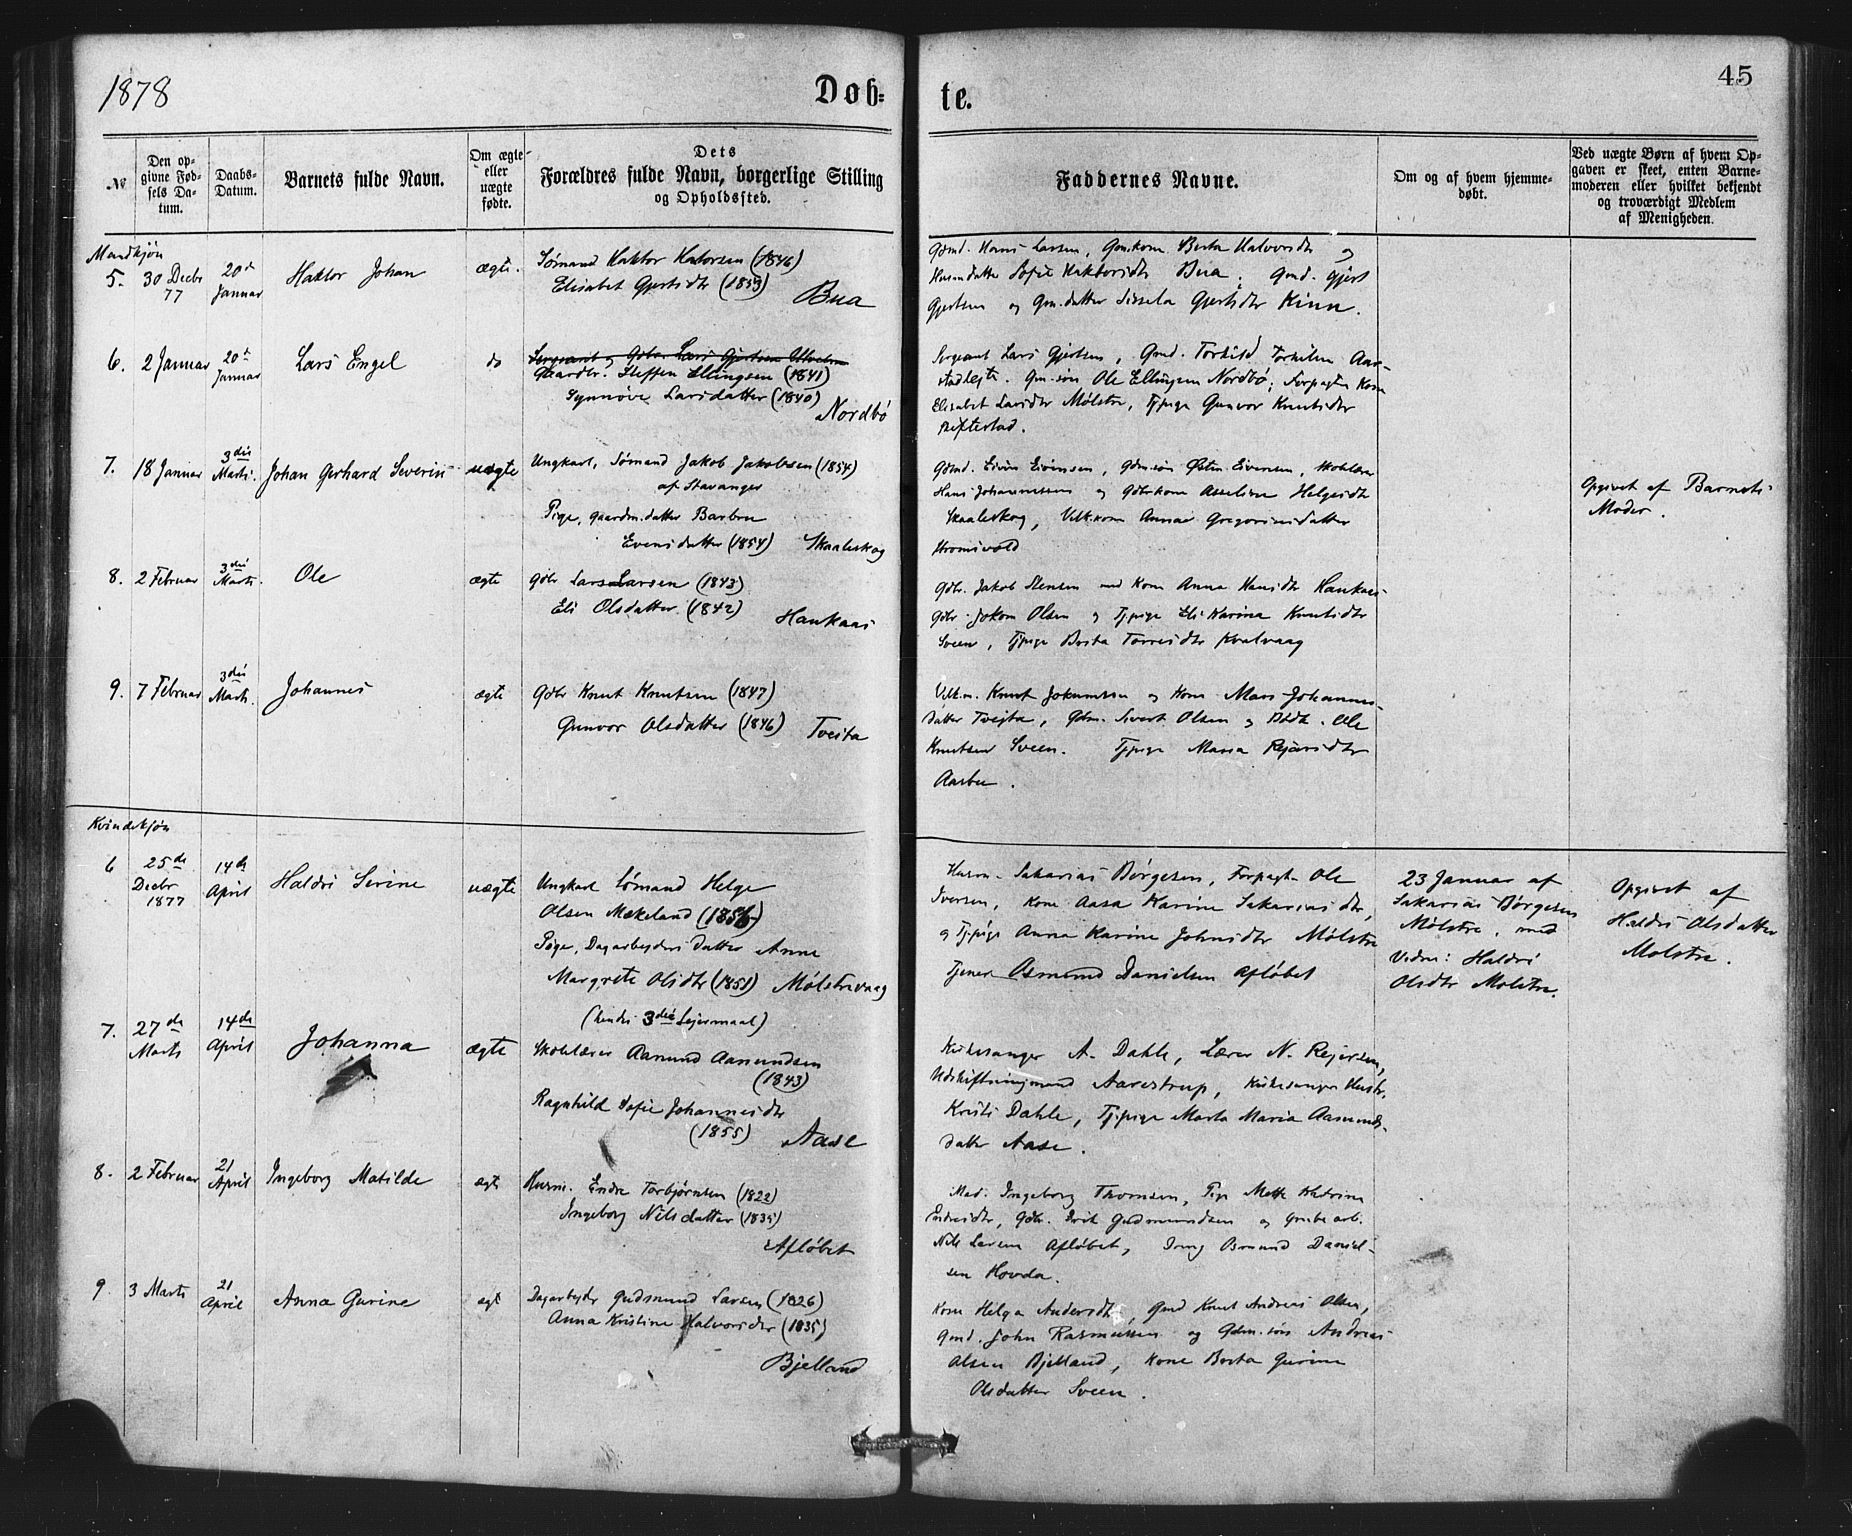 1878
Døb=
te.
45
No
Den op-
givne Fød-
sels Da-
tum.
Daabs-
Datum.
Barnets fulde Navn.
Om ægte
eller
uægte
fødte.
Dets
Forældres fulde Navn, borgerlige Stilling
og Opholdssted.
Faddernes Navne.
Om og af hvem hjemme-
døbt.
Ved uægte Børn af hvem Op-
gaven er skeet, enten Barne-
moderen eller hvilket bekjendt
og troværdigt Medlem
af Menigheden.
Mandkjøn
5. 30 Decbr 77
20de Januar
Haktor Johan
ægte.
Sømand Haktor Haktorsen (1846)
Elisabet Gjertsdtr
Bua
Gdmd. Hans Larsen, Gm.kone Berta Halvorsdtr og
Husm.datter Sofie Haktorsdtr Bua. Gmd. Gjert
Gjertsen og Gm.datter Sissela Gjertsdtr Kinn.
6. 2 Januar
20de Januar
Lars Engel
do
Gaardbr. Steffen Ellingsen (1841)
Synnøve Larsdatter (1840)
Nordbø
Sergeant Lars Gjertsen, Gmd. Torkild Torkilsen Aar-
Gm.søn Ole Ellingsen Nordbø; Forpagter Kone
Elisabet Larsdtr Mølstre, Tjpige Gunvor Knutsdtr
7. 18 Januar
3die Marts.
Johan Gerhard Severin
uægte
Ungkarl, Sømand Jakob Jakobsen (1854)
af Stavanger
Pige, gaardm.datter Barbru
Evensdatter (1854) Skaaleskog
Gdmd. Eivin Eivinsen, Gdm.søn Østen Eivensen, Skolelærer
Hans Johannessen og Gdbrkone Asseline Helgesdtr
Skaaleskog, Velk.kone Annae Gregoriusdatter
Stromsvold
Opgivet af Barnets
Moder.
8. 2 Februar
3die Marts.
Ole
ægte
Gdbr Lars Larsen (1843)
Eli Olsdatter (1842)
Haukaas
Gdbr. Jakob Stensen med Kone Anna Hansdtr Haukaas.
Gdbr. Jokom Olsen og Tjpige Eli Karina Knutsdtr
Sveen, Tjpige Berta Torresdtr Kvalvaag
9. 7 Februar
3die Marts.
Johannes
ægte
Gdbr Knut Knutsen (1847)
Gunvor Olsdatter (1846) Tveita
Knut Jokumsen og Kone Mari Johannes-
datter Tveita, Gdm. Sivert Olsen og Ole
Knutsen Sveen. Tjpige Maria Rejarsdtr
Aarbu.
Kvindekjøn
6
25de Decbr 1877
14de April
Haldri Serine
uægte
Ungkarl Sømand Helge
Olsen Mækeland (1856)
Pige, Dagarbejders Datter Anne
Margrete Olsdtr (1851) Mølstrevaag
(hendes 3die Leiermaal)
Husm. Sakarias Børgesen, Forpagt. Ole
Iversen, Kone Aasa Karine Sakariasdtr,
og Tjpige Anna Karine Johnsdtr Mølstre
Tjener Osmund Danielsen Afløbet
23 Januar af
Sakarias Børgesen
Mølstre, med
Vidne: Haldri
Olsdtr Mølstre.
Opgivet af
Haldri Olsdatter
Mølstre.
7. 27de Marts
14de April
Johanna
ægte
Skolelærer Aanund Aanundsen
(1843)
Ragnhild Sofie Johannesdtr
(1855) Aase
Kirkesanger A. Dahle, Lærer N. Rejersen,
Udskiftningsmand Aarestrup, Kirkesanger Hustr.
Kristi Dahle, Tjpige Marta Maria Aasmunds-
datter Aase.
8. 2 Februar
21 April
Ingeborg Matilde
ægte
Husm. Endre Torbjørnsen (1822)
Ingeborg Nilsdatter (1835)
Afløbet
Mad. Ingeborg Thomsen, Pige Mette Katrine
Endresdtr, Gdbr. Erik Gudmundsen og Grubearb.
Nils Larsen Afløbet, Osmund Daniel-
sen Hovda.
9. 3 Marts
21 April
Anna Gurine
ægt
Dagarbejder Gudmund Larsen (1826)
Anna Kristine Halvorsdtr (1835)
Bjelland
Kone Helga Andersdtr, Gmd Knut Andreas Olsen,
Gmd. John Rasmussen og Gdm.søn Andreas
Olsen Bjelland, Kone Berta Gurine
Olsdatter Sveen.